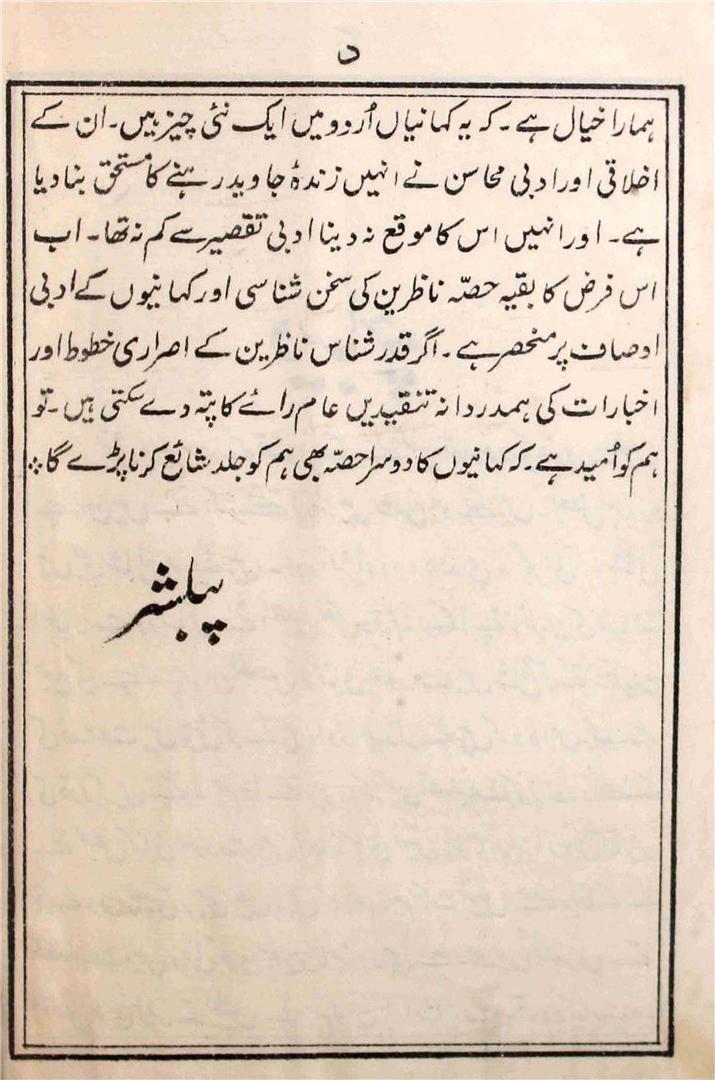 د
ہمارا خیال ہے۔ کہ یہ کہانیاں اُردو میں ایک نئی چیز ہیں۔ ان کے
اخلاقی اور ادبی محاسن نے انہیں زندۂ جاوید رہنے کا مستحق بنا دیا
ہے۔ اور انہیں اس کا موقع نہ دینا ادبی تقصیر سے کم نہ تھا۔ اب
اس فرض کا بقیہ حصّہ ناظرین کی سخن شناسی اور کہانیوں کے ادبی
اوصاف پر منحصر ہے۔ اگر قدر شناس ناظرین کے اصراری خطوط اور
اخبارات کی ہمدردانہ تنقیدیں عام رائے کا پتہ دے سکتی ہیں۔ تو
ہم کو اُمید ہے۔ کہ کہانیوں کا دوسرا حصّہ بھی ہم کو جلد شائع کرنا پڑے گا؞
پبلشر